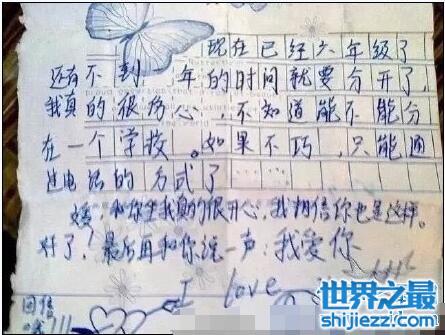 现在已经六年级了
还有不到一年的时间就要分开了,
我真的很伤心,不知道能不能分
在一个学校。如果不巧,只能通
过电话的方式了……
和你坐我真的很开心,我相信你也是这样。
好了!最后再和你说一声:我爱你
I love
回信
哦!!!
世界之最
www.shijiezzz.com